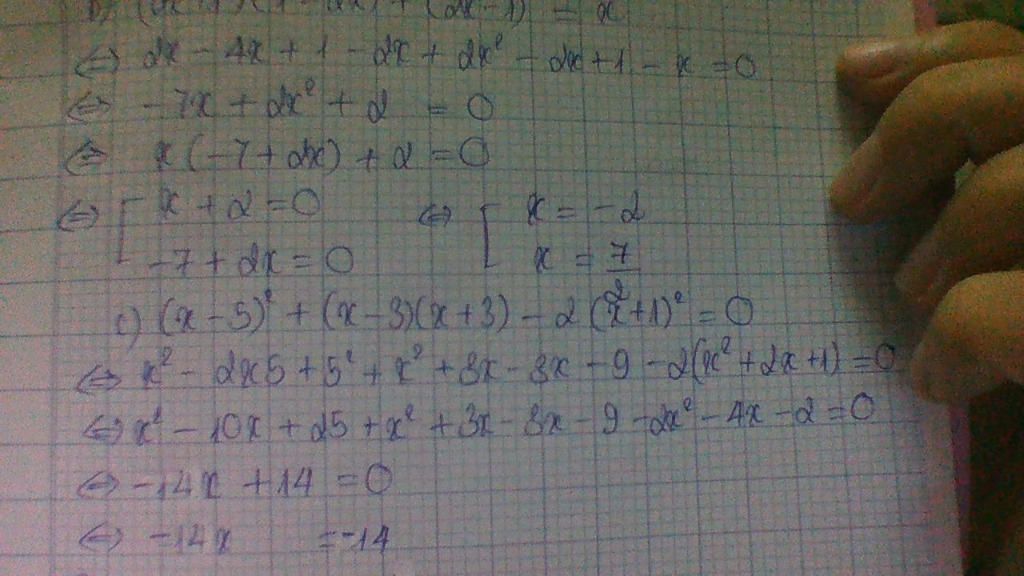 ⇔ 2x - 4x + 1 - 2x + 2x² - 2x + 1 - x = 0
⇔ -7x + 2x² + 2 = 0
⇔ x(-7 + 2x) + 2 = 0
⇔ [ x + 2 = 0 ⇔ [ x = -2
-7 + 2x = 0 x = 7/2
c) (x - 5)² + (x - 3)(x + 3) - 2(x + 1)² = 0
⇔ x² - 2x5 + 5² + x² + 3x - 3x - 9 - 2(x² + 2x + 1) = 0
⇔ x² - 10x + 25 + x² + 3x - 3x - 9 - 2x² - 4x - 2 = 0
⇔ -14x + 14 = 0
⇔ -14x = -14